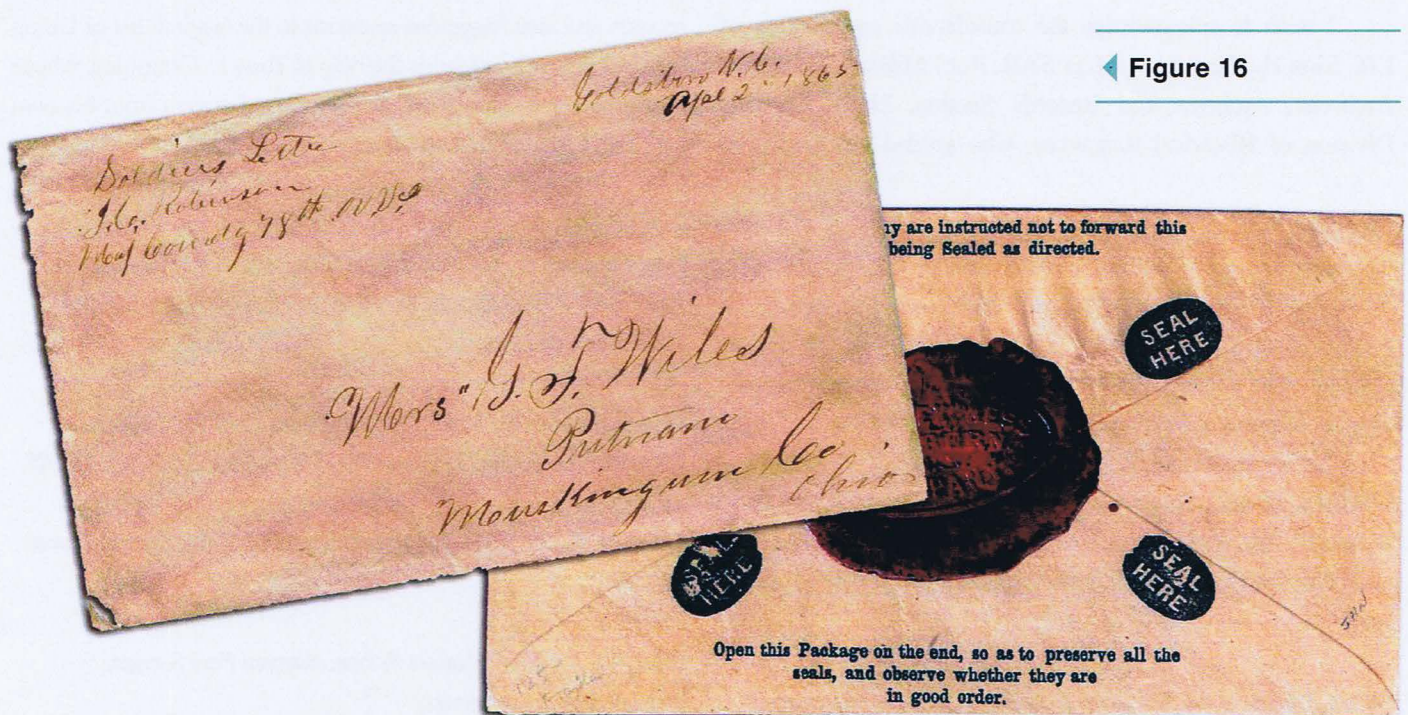 Figure 16
Goldsboro N.C.
Apl 2 1865
Soldiers Letter
J.C. Robinson
Maj Comdg 78th O.V.
"Mrs" G. F. Wiles
Putnam
Muskingum Co
Ohio
ny are instructed not to forward this
being Sealed as directed.
SEAL
HERE
SEAL
HERE
SEAL
HERE
Open this Package on the end, so as to preserve all the
seals, and observe whether they are
in good order.